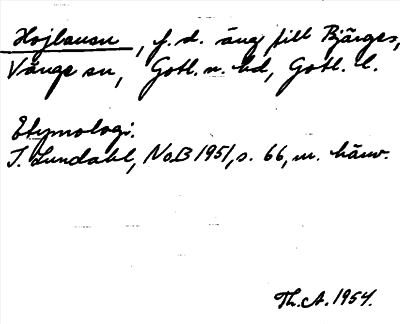 Hojlausu, f.d. äng till Bjärges,
Vänge sn, Gotl. n. hd, Gotl. l.
Etymologi:
I. Lundahl, NoB 1951, s. 66, m. hänv.
Th. A. 1954.